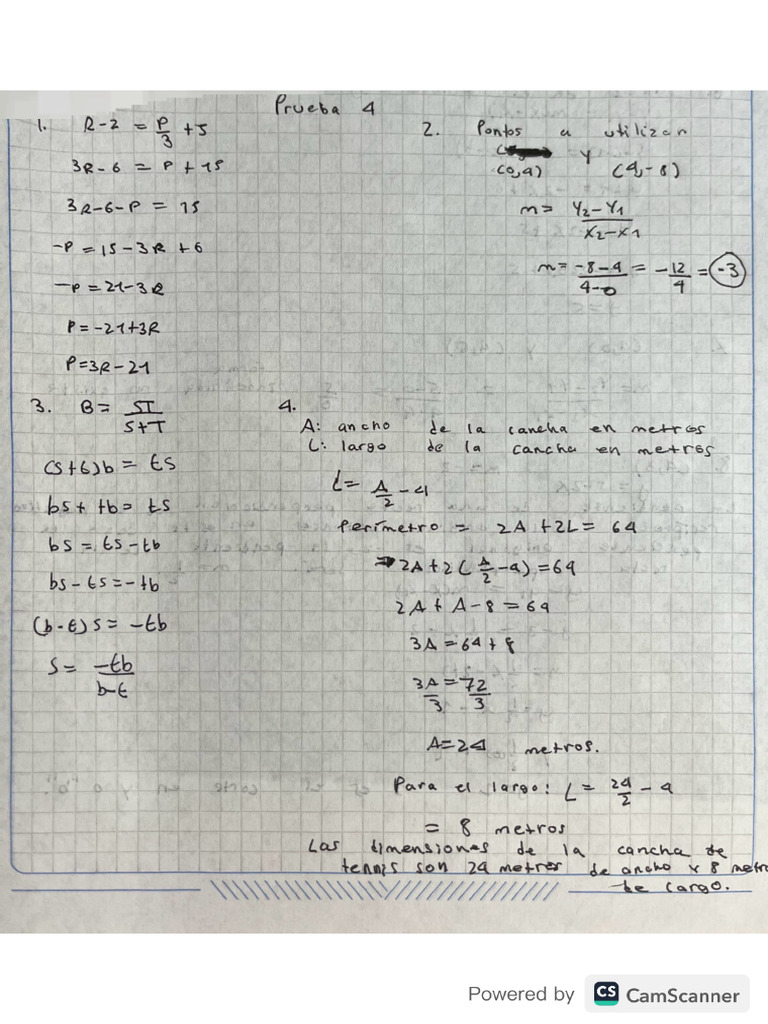 Prueba 4
1. R-2 = P/3 + 5
3R-6 = P + 15
3R-6-P = 15
-P = 15-3R+6
-P = 21-3R
P = -21+3R
P = 3R-21
2. Pontos a utilizar
(0,4) y (4,-8)
m = Y2-Y1/X2-X1
m = -8-4/4-0 = -12/4 = -3
3. B = ST/S+T
(s+t)b = ts
bs + tb = ts
bs = ts - tb
bs - ts = -tb
(b-t)s = -tb
S = -tb/b-t
4.
A: ancho de la cancha en metros
L: largo de la cancha en metros
L = A/2 - 4
Perímetro = 2A + 2L = 64
→ 2A + 2(A/2 - 4) = 64
2A + A - 8 = 64
3A = 64 + 8
3A/3 = 72/3
A = 24 metros.
Para el largo: L = 24/2 - 4
= 8 metros
Las dimensiones de la cancha de
tennis son 24 metros de ancho x 8 metr
de largo.
Powered by CS CamScanner